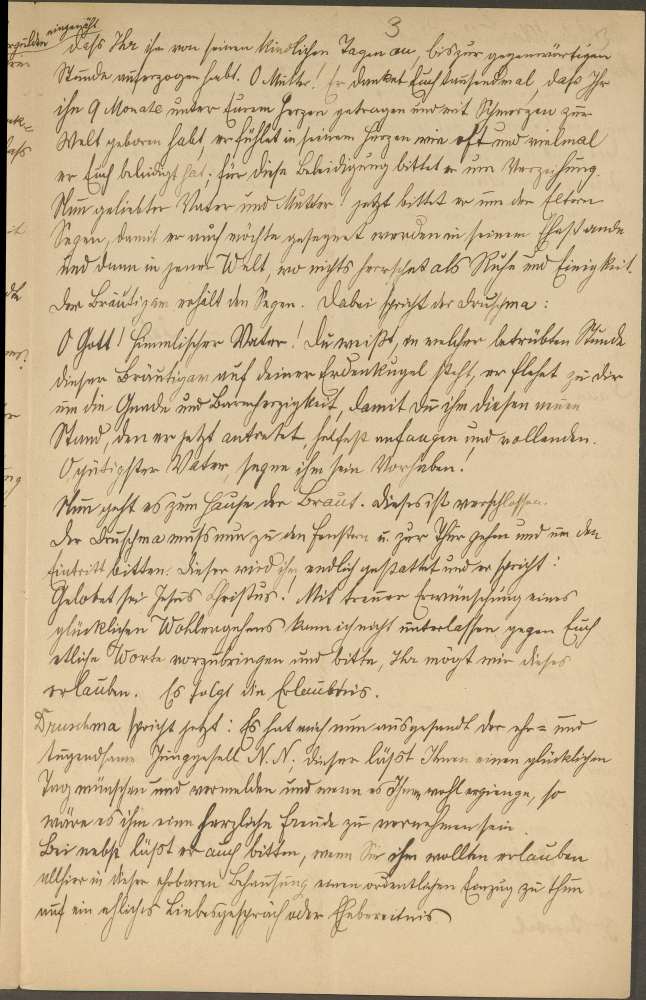 3
eingezählt
daß Ihr ihn von seinen kindlichen Tagen an, bis zur gegenwärtigen
Stunde auferzogen habt. O Mutter! Er danket Euch tausendmal, daß Ihr
ihn 9 Monate unter Eurem Herzen getragen und mit Schmerzen zur
Welt geboren habt, er fühlet in seinem Herzen wie oft und vielmal
er Euch beleidigt hat; für diese Beleidigung bittet er um Verzeihung.
Nun geliebter Vater und Mutter! jetzt bittet er um der Eltern
Segen, damit er auch möchte gesegnet werden in seinem Ehestande
und dann in jener Welt, wo nichts herrschet als Ruhe und Einigkeit.
Der Bräutigam erhält den Segen. Dabei spricht der Druschma:
O Gott! himmlischer Vater! Du weißt, in welcher betrübten Stunde
dieser Bräutigam auf deiner Erdenkugel steht, er flehet zu dir
um die Gnade und Barmherzigkeit, damit du ihm diesen neuen
Stand, den er jetzt antretet, helfest anfangen und vollenden.
O gütigster Vater, segne ihm sein Vorhaben.
Nun geht es zum Hause der Braut. Dieses ist verschlossen.
Der Druschma muß nun zu den Fenstern u. zur Thür gehen und um den
Eintritt bitten. Dieser wird ihm endlich gestattet und er spricht:
Gelobet sei Jesus Christus! Mit treuer Erwünschung eines
glücklichen Wohlergehens kann ich nicht unterlassen gegen Euch
etliche Worte vorzubringen und bitte, Ihr mögt mir dieses
erlauben. Es folgt die Erlaubnis.
Druschma spricht jetzt: Es hat mich nun ausgesandt der ehr= und
tugendsame Junggesell N. N; dieser läßt Ihnen einen glücklichen
Tag wünschen und vermelden und wenn es Ihnen wohl ergienge, so
wäre es ihm eine herzliche Freude zu vernehmen sein.
Bei nebst läßt er auch bitten, wenn Sie ihm wollten erlauben
allhier in dieser ehrbaren Behausung einen ordentlichen Einzug zu thun
auf ein ehliches Liebesgespräch oder Ehebereitnis